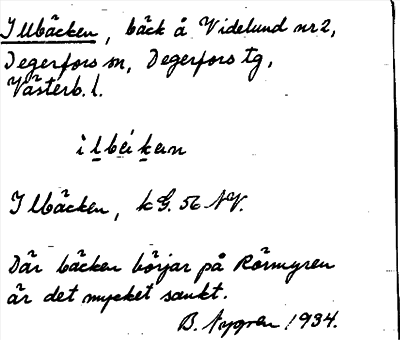 Illbäcken, bäck å Videlund nr 2,
Degerfors sn, Degerfors tg,
Västerb. l.
ìlbéikən
Ilbäcken, k G. 56 NV.
Där bäcken börjar på Rörmyren
är det mycket sankt.
B. Nygren 1934.